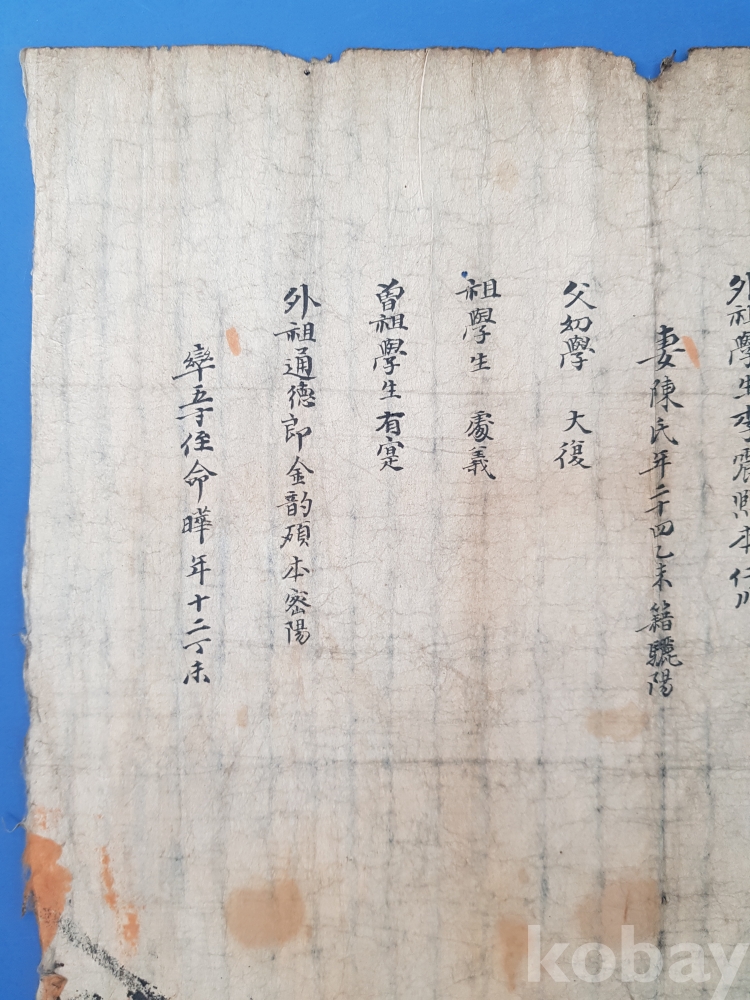 外祖學生李震煕本仁川
妻陳氏年二十四乙未籍驪陽
父幼學 大復
祖學生 處義
曽祖學生有寔
外祖通德郎金韵碩本密陽
率弟侄命曄年十二丁未
kobay